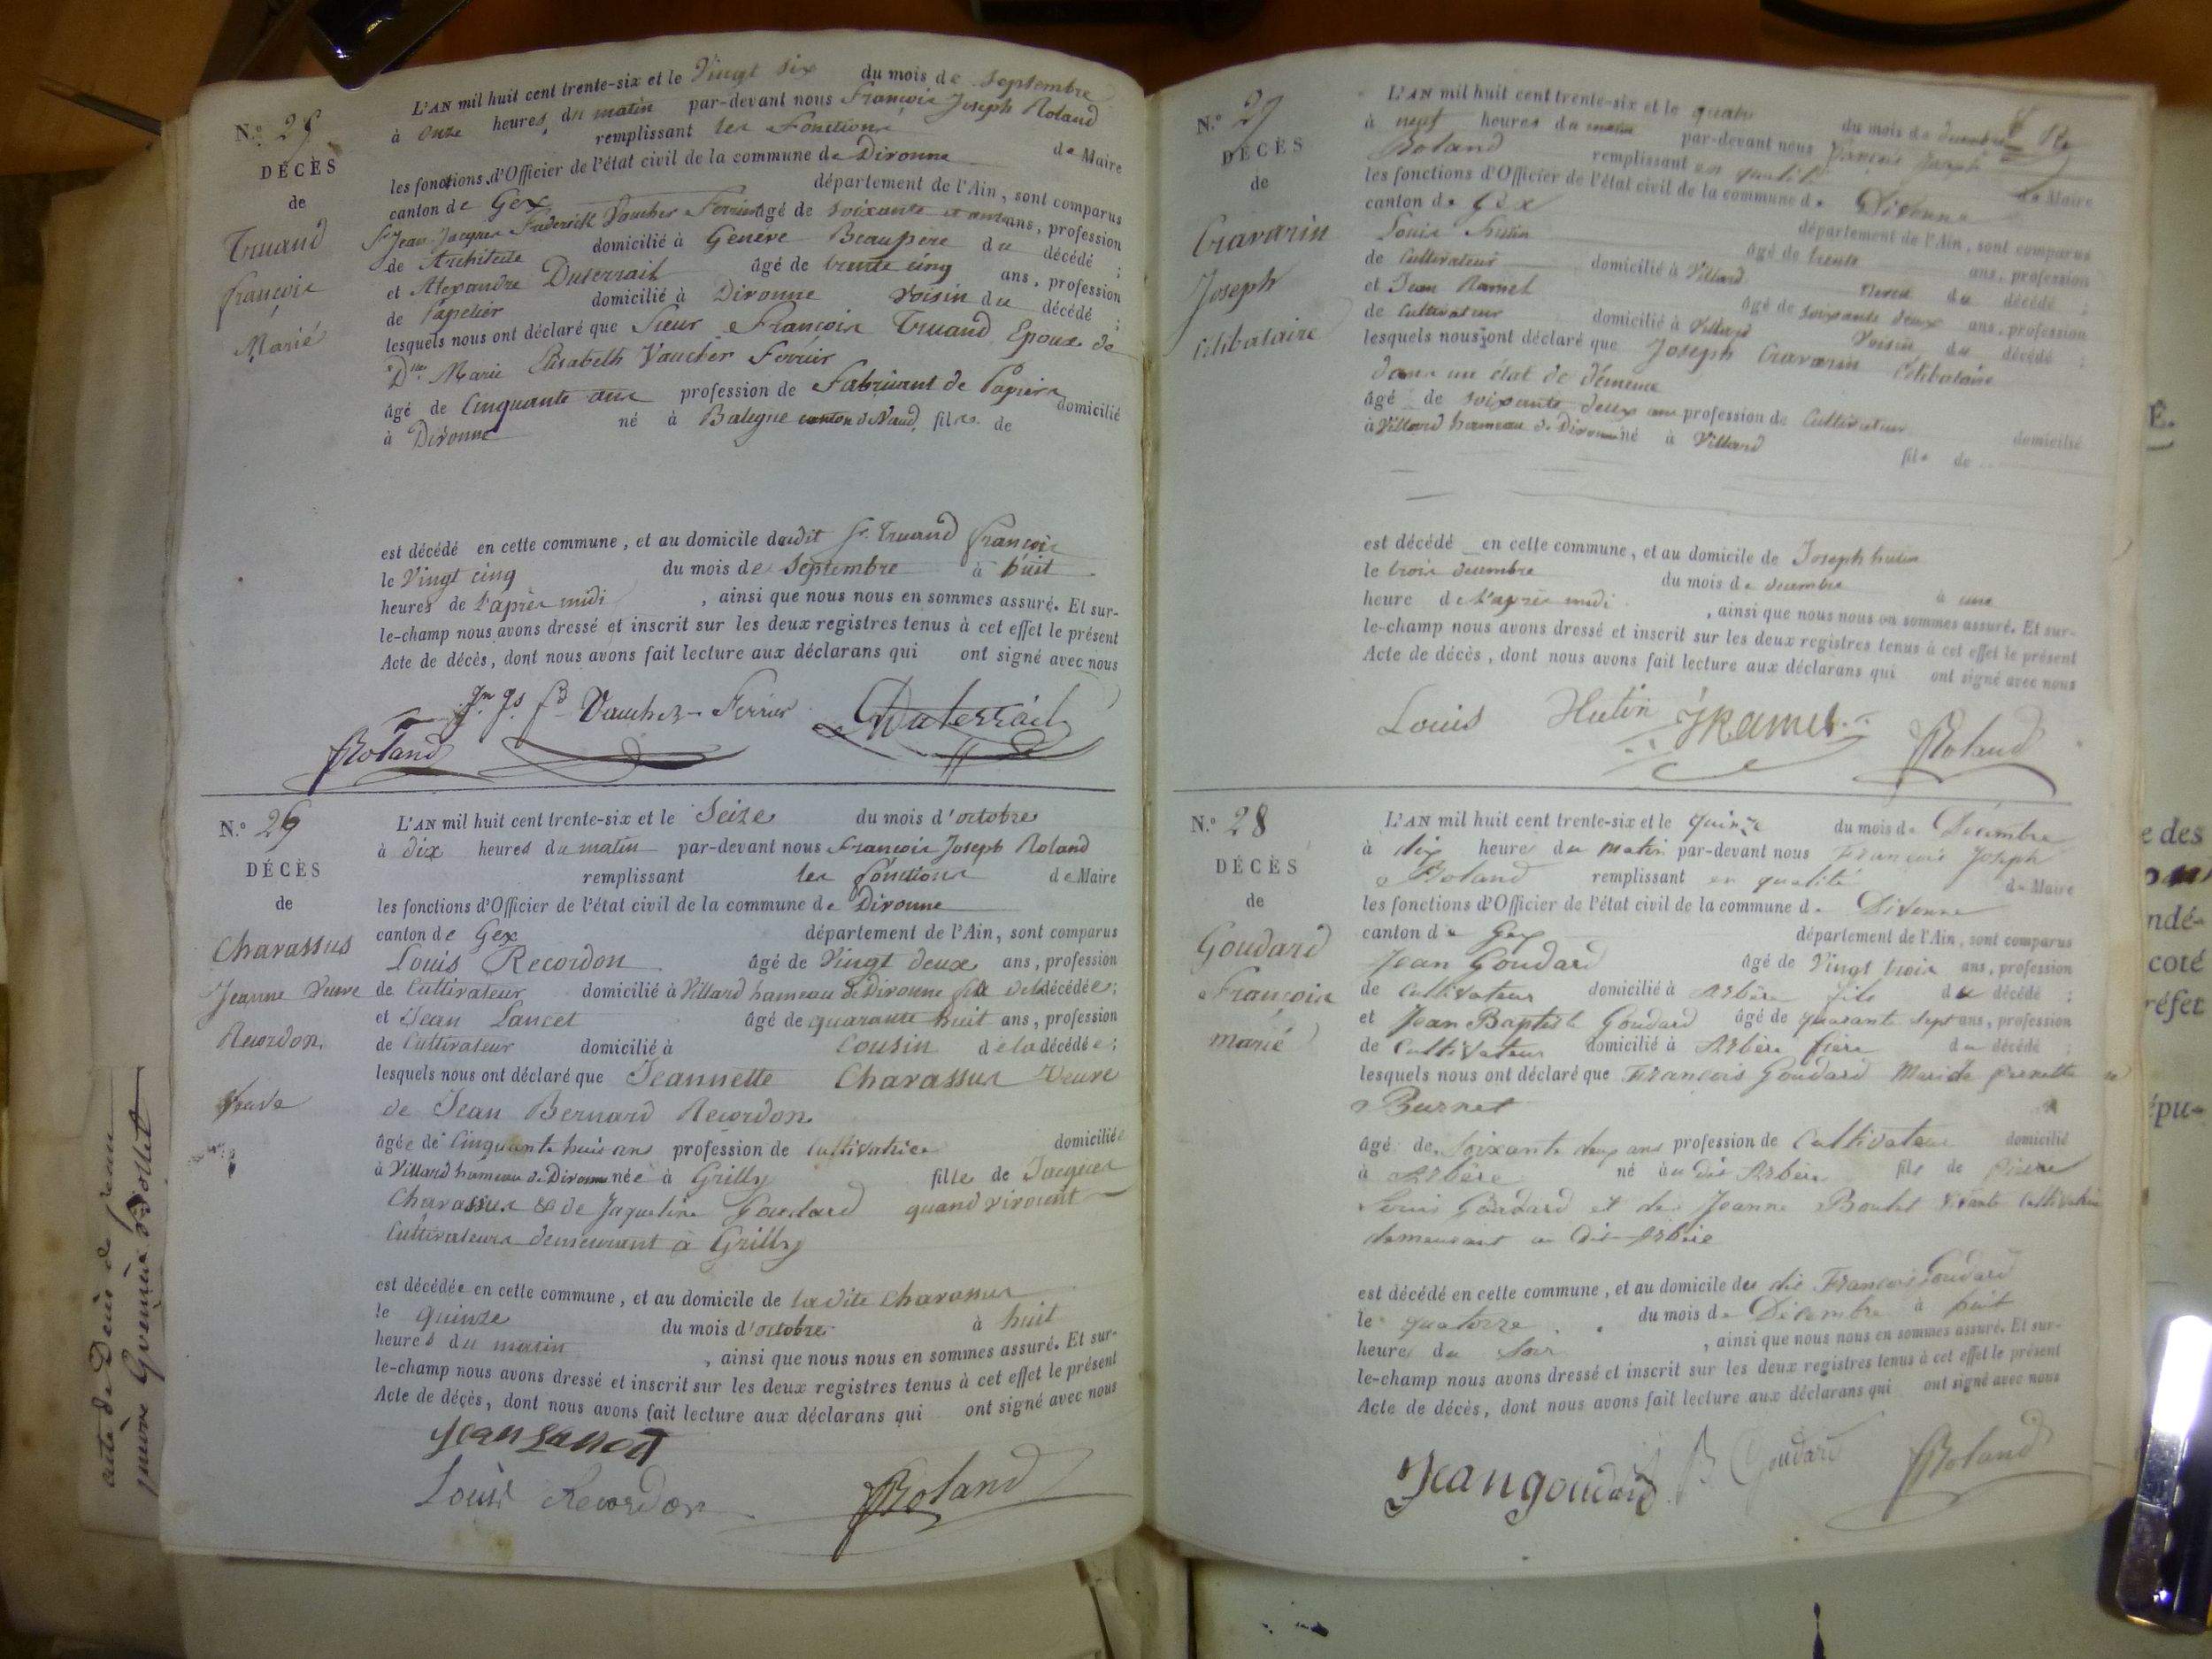 N.º 25
DÉCÈS
de
Truand
françois
Marié
L'AN mil huit cent trente-six et le Vingt six du mois de Septembre
à onze heures du matin par-devant nous François Joseph Roland
remplissant les Fonctions de Maire
les fonctions d'Officier de l'état civil de la commune de Divonne
canton de Gex département de l'Ain, sont comparus
Sr Jean Jacques Frederick Vaucher Ferrier âgé de soixante et ans, profession
de Architecte domicilié à Genève Beaupère du décédé ;
et Alexandre Duterrail âgé de trente cinq ans, profession
de Papetier domicilié à Divonne Voisin du décédé ;
lesquels nous ont déclaré que Sieur François Truand Epoux de
Marie Elisabeth Vaucher Ferrier
âgé de Cinquante ans profession de Fabricant de Papier domicilié
à Divonne né à Balegne canton de Vaud, fils de
est décédé en cette commune, et au domicile dudit Sr. Truand françois
le Vingt cinq du mois de Septembre à huit
heures de l'après midi, ainsi que nous nous en sommes assuré. Et sur-
le-champ nous avons dressé et inscrit sur les deux registres tenus à cet effet le présent
Acte de décès, dont nous avons fait lecture aux déclarans qui ont signé avec nous
Jn Js fd Vaucher Ferrier Duterrail
Roland
N.º 26
DÉCÈS
de
Charassus
Jeanne Veuve
Recordon.
L'AN mil huit cent trente-six et le Seize du mois d'octobre
à dix heures du matin par-devant nous François Joseph Roland
remplissant les fonctions de Maire
les fonctions d'Officier de l'état civil de la commune de Divonne
canton de Gex département de l'Ain, sont comparus
Louis Recordon âgé de Vingt deux ans, profession
de Cultivateur domicilié à Villard hameau de Divonne fils de la décédée ;
et Jean Lancet âgé de quarante huit ans, profession
de Cultivateur domicilié à Cousin de la décédée ;
lesquels nous ont déclaré que Jeannette Charassus Veuve
de Jean Bernard Recordon
âgée de Cinquante huit ans profession de Cultivatrice domiciliée
à Villard hameau de Divonne née à Grilly fille de Jacques
Charassus & de Jaqueline Goudard quand vivoient
Cultivateurs demeurant à Grilly
est décédée en cette commune, et au domicile de ladite Charassus
le quinze du mois d'octobre à huit
heures du matin, ainsi que nous nous en sommes assuré. Et sur-
le-champ nous avons dressé et inscrit sur les deux registres tenus à cet effet le présent
Acte de décès, dont nous avons fait lecture aux déclarans qui ont signé avec nous
Jean Lancet
Louis Recordon Roland
acte de Décès de
N.º 27
DÉCÈS
de
Cravarin
Joseph
Célibataire
L'AN mil huit cent trente-six et le quatre du mois de decembre
à neuf heures du matin par-devant nous françois Joseph
Roland remplissant en qualité de Maire
les fonctions d'Officier de l'état civil de la commune de Divonne
canton de Gex département de l'Ain, sont comparus
Louis Hutin âgé de trente ans, profession
de Cultivateur domicilié à Villard Neveu du décédé ;
et Jean Ramel âgé de soixante deux ans, profession
de Cultivateur domicilié à Villard Voisin du décédé ;
lesquels nous ont déclaré que Joseph Cravarin Célibataire
dans un état de démence
âgé de soixante deux ans profession de Cultivateur domicilié
à Villard hameau de Divonne né à Villard fils de
est décédé en cette commune, et au domicile de Joseph hutin
le trois decembre du mois de decembre à une
heure de l'après midi, ainsi que nous nous en sommes assuré. Et sur-
le-champ nous avons dressé et inscrit sur les deux registres tenus à cet effet le présent
Acte de décès, dont nous avons fait lecture aux déclarans qui ont signé avec nous
Louis Hutin JRamel Roland
N.º 28
DÉCÈS
de
Goudard
François
marié
L'AN mil huit cent trente-six et le quinze du mois de Décembre
à dix heures du matin par-devant nous François Joseph
Roland remplissant en qualité de Maire
les fonctions d'Officier de l'état civil de la commune de Divonne
canton de Gex département de l'Ain, sont comparus
Jean Goudard âgé de Vingt trois ans, profession
de Cultivateur domicilié à Arbère fils du décédé ;
et Jean Baptiste Goudard âgé de quarante sept ans, profession
de Cultivateur domicilié à Arbère frère du décédé ;
lesquels nous ont déclaré que François Goudard Mari de Pernette
Burnet
âgé de soixante deux ans profession de Cultivateur domicilié
à Arbère né au dit Arbère fils de Pierre
Louis Goudard et de Jeanne Boulet
demeurant au Dit Arbère
est décédé en cette commune, et au domicile du dit François Goudard
le quatorze du mois de Décembre à huit
heures du Soir, ainsi que nous nous en sommes assuré. Et sur-
le-champ nous avons dressé et inscrit sur les deux registres tenus à cet effet le présent
Acte de décès, dont nous avons fait lecture aux déclarans qui ont signé avec nous
Jean goudard J B Goudard Roland
e des
ndé-
coté
réfet
épu-